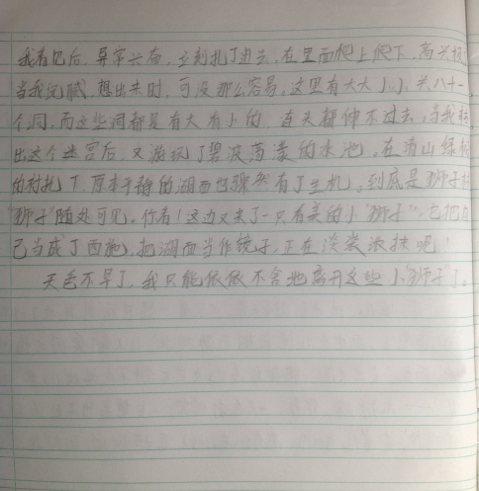 我看见后，异常兴奋，立刻扎了进去，在里面爬上爬下，高兴极
当我玩腻，想出来时，可没那么容易。这里有大大小小，共八十一
个洞，而这些洞都是有大有小的，连头都伸不过去，当我
出这个迷宫后，又游玩了碧波荡漾的水池。在青山绿树
的衬托下，原本平静的湖面也骤然有了生机。到底是狮子
"狮子"随处可见。你看！这边又来了一只有美的小"狮子"，它把自
己当成了西施，把湖面当作镜子，正在淡装浓抹呢！
天色不早了，我只能依依不舍地离开这些小"狮子"了。